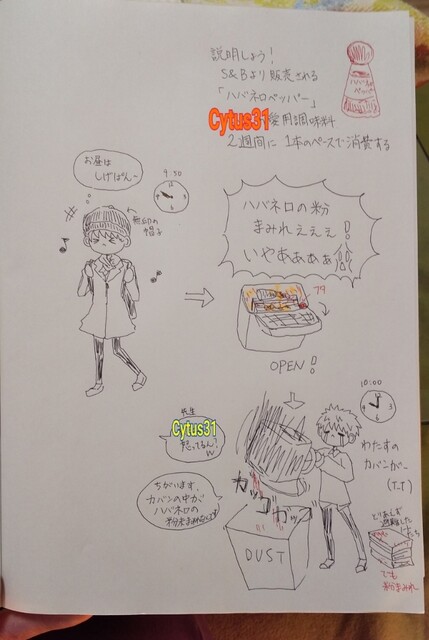 説明しよう!
S&Bより販売される
「ハバネロペッパー」
Cytus31愛用調味料
2週間に1本のペースで消費する
ハバネロ
ペッパー
お昼は
しげぱん〜
9:50
無印の
帽子
ハバネロの粉
まみれえええ!
いやあああぁ!!
フタ
OPEN!
10:00
先生
Cytus31
怒ってるん?
w
わたすの
カバンがー
(T-T)
ちがいます、
カバンの中が
ハバネロの
ガッ
コ
ガッ
DUST
とりあえず
避難した
でも
粉まみれ〜